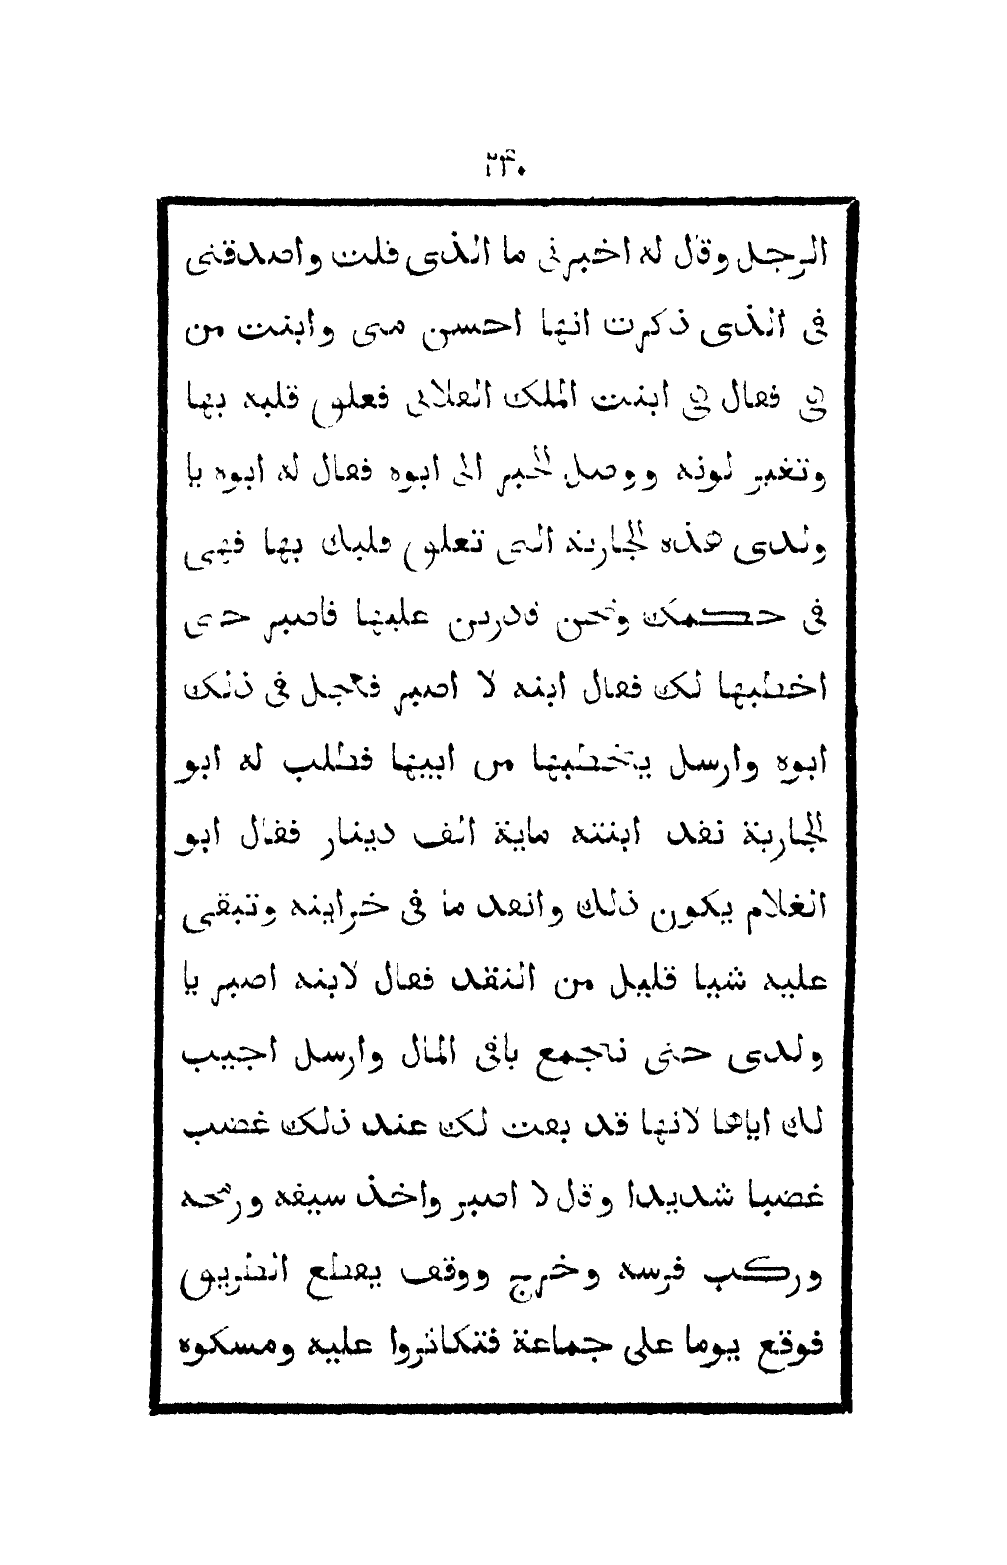 ٢٤٠
الرجل وقال له اخبرنى ما الذى قلت واصدقنى
فى الذى ذكرت انها احسن منى وابنت من
هى فقال هى ابنت الملك الفلانى فعلق قلبه بها
وتغير لونه ووصل الخبر الى ابوه فقال له ابوه يا
ولدى هذه الجارية التى تعلق قلبك بها فهى
فى حكمك ونحن قادرين عليها فاصبر حتى
اخطبها لك فقال ابنه لا اصبر فعجل فى ذلك
ابوه وارسل يخطبها من ابيها فطلب له ابو
الجارية نقد ابنته ماية الف دينار فقال ابو
الغلام يكون ذلك وانقد ما فى خزاينه وتبقى
عليه شيا قليل من النقد فقال لابنه اصبر يا
ولدى حتى نجمع باقى المال وارسل اجيب
لك اياها لانها قد بقت لك عند ذلك غضب
غضبا شديدا وقال لا اصبر واخذ سيفه ورمحه
وركب فرسه وخرج ووقف يقطع الطريق
فوقع يوما على جماعة فتكاثروا عليه ومسكوه